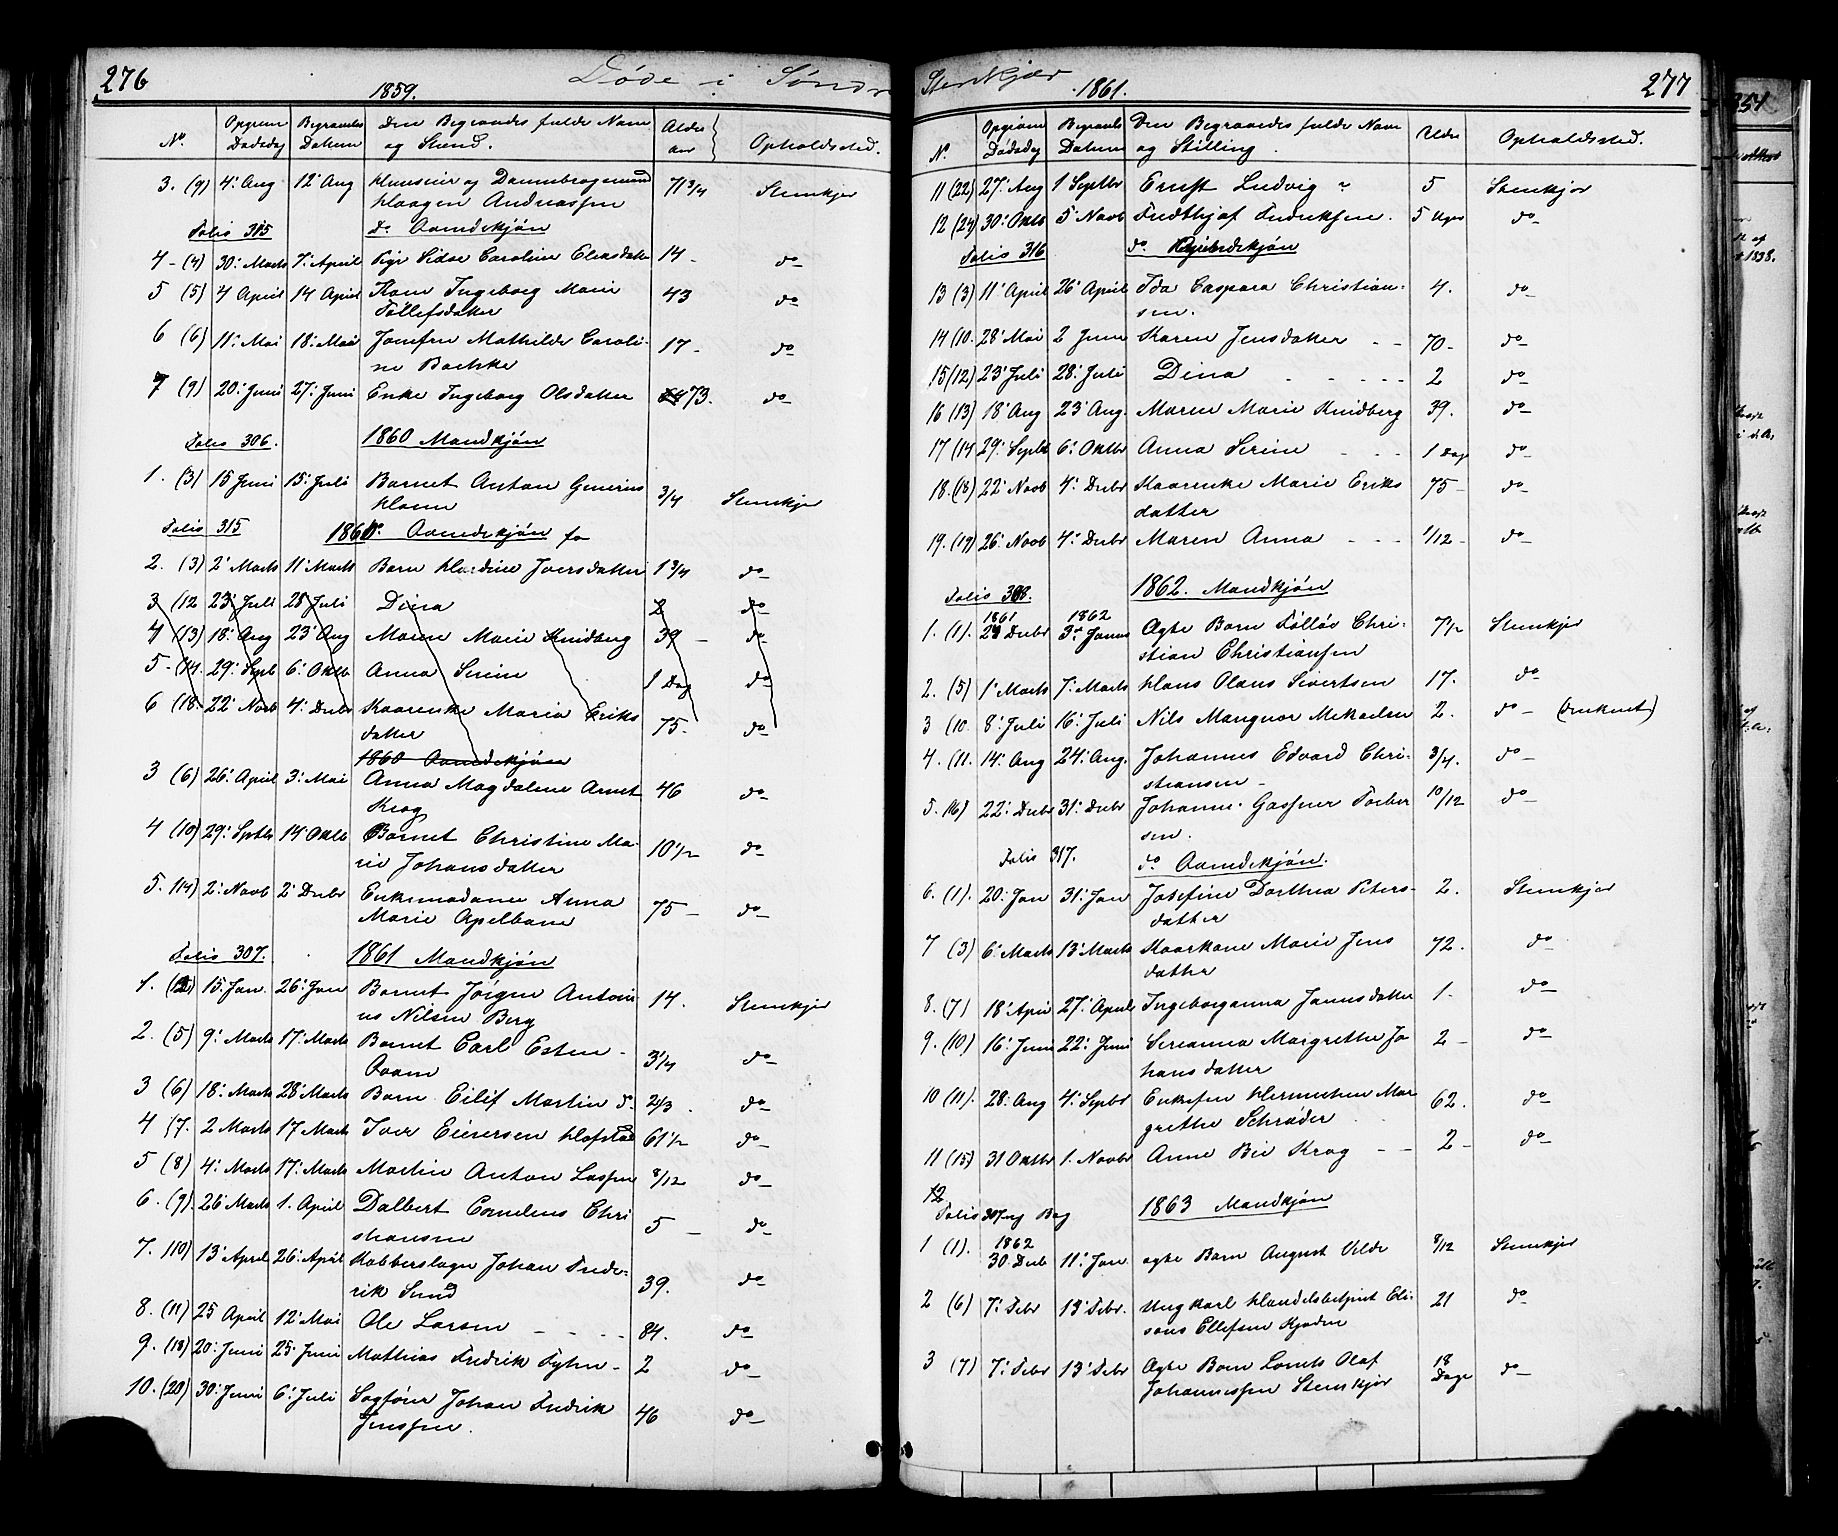 276
1859.
Døde i Søndre
No. Opgiven Dødsdag Begravelses Datum Den Begravedes fulde Navn og Stand. Alder aar Opholdssted.
3. (9) 4: Aug 12' Aug Huuseier og Dannebrogsmand Haagen Andreassen 71 3/4 Stenkjer
Folio 315 do Qvindekjön
4 - (4) 30: Marts 7: April Pige Sidse Caroline Eliasdatter 14 - do
5 (5) 4 April 14 April Kone Ingeborg Marie Tollefsdatter 43 do
6 (6) 11: Mai 18: Mai Jomfru Mathilde Caroline Backke 17 - do
7 (9) 20: Juni 27: Juni Enke Ingeborg Olsdatter 73. do
Folio 306. 1860 Mandkjön
1. (3) 15 Juni 15: Juli Barnet Anton Generius 3/4 Stenkjer
Folio 315 1860. Qvindekjön
2. (3) 2' Marts 11' Marts Barn Hardine Iversdatter 1 3/4 do
3 (12 23' Juli 28 Juli Dina 2 do
4 (13) 18: Aug 23' Aug Maren Marie Knidberg 39 - do
5 - (14. 29: Septb 6: Oktb Anna Serine 1 Dag do
6 (18. 22' Novb 4: Decbr Kaarenke Maria Eriksdatter 75 - do
1860 Qvindekjön
3 (6) 26: April 3: Mai Anna Magdalene Arnet Krog 46 do
4 (10) 29: Septbr 14' Oktb Barnet Christine Marie Johansdatter 10 1/2 do
5. (14) 2: Novb 2' Decbr Enkemadame Anna Marie Apelbom 75 - do
Folio 307. 1861 Mandkjön
1. 15: Jan. 26' Jan Barnet Jörgen Antonius Nilsen Berg 14. Stenkjer
2. (5) 9: Marts 17: Marts Barnet Carl Esten 3 1/4 do
3 (6) 18: Marts 28' Marts Barn Eilif Martin 2/3 do
4 (7. 2 Marts 17 Marts Iver Eiversen Hofstad 61 1/2 do
5 (8) 4: Marts 17: Marts Martin Anton Lassen 8/12 do
6. (9). 26' Marts 1. April Dalbert Cornelius Christiansen 5 - do
7. (10) 13' April 26' April Kobberslager Johan Frederik Sund 39. do
8. (11) 25 April 12' Mai Ole Larsen 84. do
9. (18) 20: Juni 25' Juni Mathias Fredrik Fyhn - 2 do
10. (20) 30: Juni 6' Juli Sagförer Johan Fredrik Jenssen. 46 do
Stenkjær
1861.
277
N. Opgiven Dödsdag Begravels Datum Den Begravedes fulde Navn og Stilling. Alder Opholdssted.
11 (22) 27: Aug 1 Septbr Ernst Ludvig 5 Stenkjer
12 (24) 30: Oktb 5' Novb Fredthjof Fredriksen. 5 Uger do
Folio 316 do Qvindekjön
13 (3) 11' April 26' April Ida Caspara Christiansen. 4. do
14 (10. 28' Mai 2 Juni Karen Jensdatter - - 70 - do
15 (12) 23' Juli 28: Juli Dina - - - - 2 do
16 (13) 18' Aug 23' Aug. Maren Marie Knidberg 39. do
17 (14 29: Septb 6: Oktbr Anna Serine - - - 1 Dag do
18. (18) 22' Novb 4: Decbr Kaarenke Marie Eriksdatter 75 - do
19. (19) 26' Novb 4: Decbr Maren Anna - - - 1/12 - do
Folio 308. 1862. Mandkjön
1861 1862
1. (1). 24 Decbr 3' Januar Ægte Barn Tollöv Christian Christiansen 7 1/2 Stenkjer
2. (5) 1' Marts 7: Marts Hans Olaus Sivertsen 17. do
3 (10. 8' Juli 16: Juli Nils Mangnor Mekaelsen 2. do - (druknet)
4. (11. 14' Aug 24: Aug. Johannes Edvard Christiansen - 3/4. do -
5. (16) 22: Decbr 31: Decbr Johannes 10/12 do -
Folio 317. do Qvindekjön.
6. (1). 20: Jan 31: Jan Josefine Dorthea Petersdatter 2. Stenkjer
7 (3) 6' Marts 13' Marts Kaarkone Marie Jensdatter 72. do
8. (7) 18' April 27: April Ingeborganna Jannesdatter 1. do
9. (10) 16: Juni 22: Juni Sereanna Margrethe Johansdatter 2 - do
10 (11). 28: Aug 4: Septbr Enkefru Margrethe Schrøder 62. do
11 (15) 31 Oktbr 1. Novbr Anne Bea Krog - - 2 - do
12
Folio 307 og Bag 1863 Mandkjön
1862
1 (1). 30 Decb 11: Jan ægte Barn August Velde 8/12 Stenkjer
2 (6) 7: Febr 13' Febr. Ungkarl Handelsbetjent Elisæus Ellefsen 21 do
3 (7) 7: Febr 13' Febr Ægte Barn Lorents Olaf Johannessen Stenkjer 18 Dage do